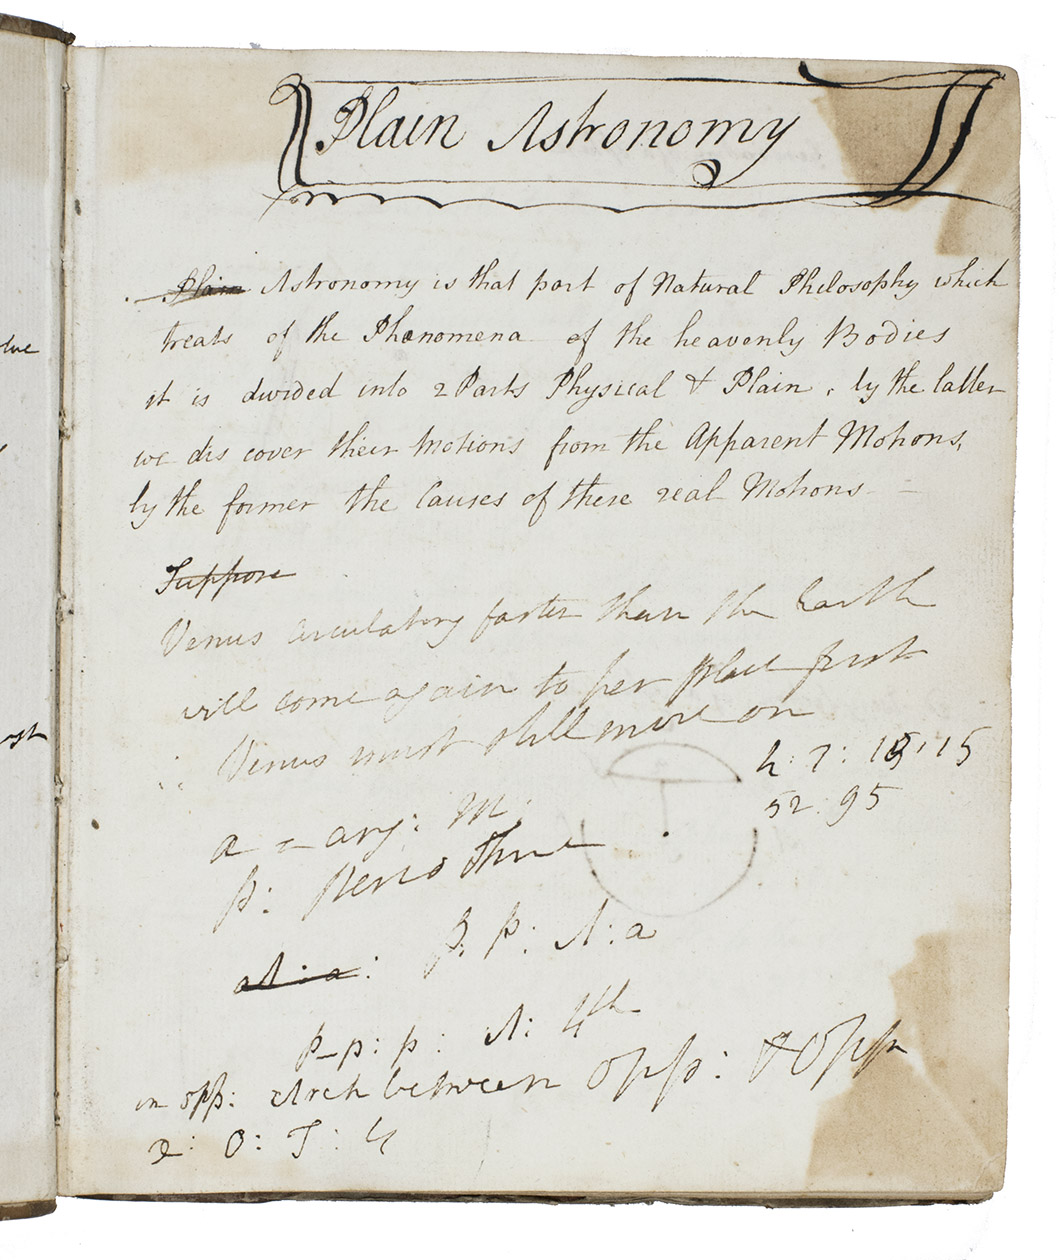 Plain Astronomy
Plain Astronomy is that part of Natural Philosophy which
treats of the Phænomena of the heavenly Bodies
it is divided into 2 Parts Physical & Plain, by the latter
we dis cover their Motions from the Apparent Motions,
by the former the Causes of these real Motions
Suppose
Venus circulating faster than the Earth
will come again to her place first
∴ Venus must still move on
h: 7: 15, 15
52: 95
a = arg: M:
p: Perio Time
A: a:
P: p: A: a
P-p: p: A: 4th
in opp: Arch between opp: & Opp
O: T:
lve